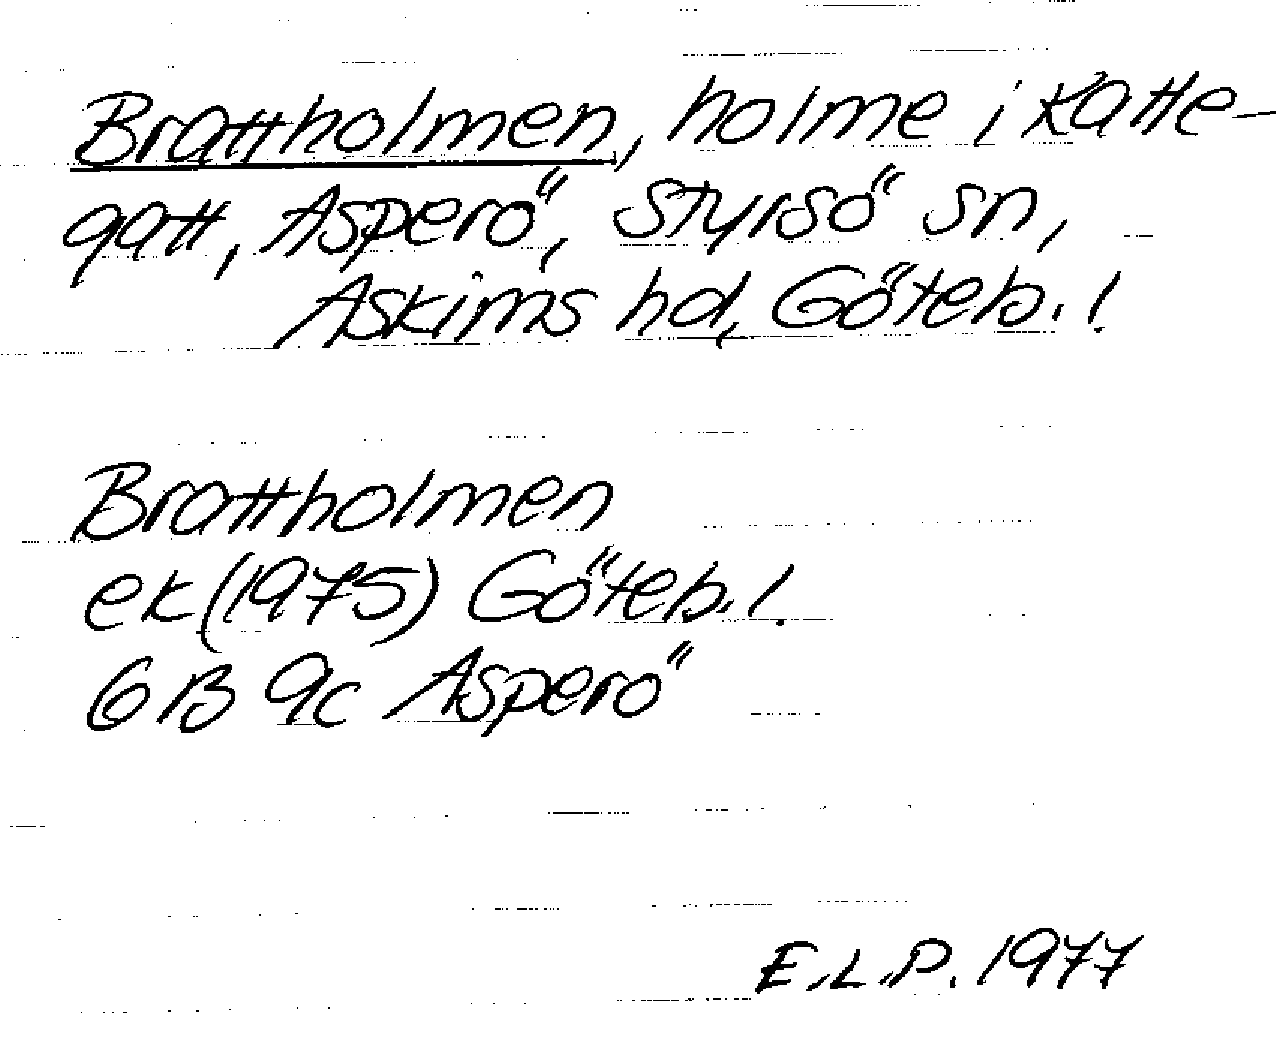 Brattholmen, holme i Katte-
gatt, Asperö, Styrsö sn,
Askims hd, Göteb. l.
Brattholmen
ek (1975) Göteb. l.
6B 9c Asperö
E.L.P. 1977